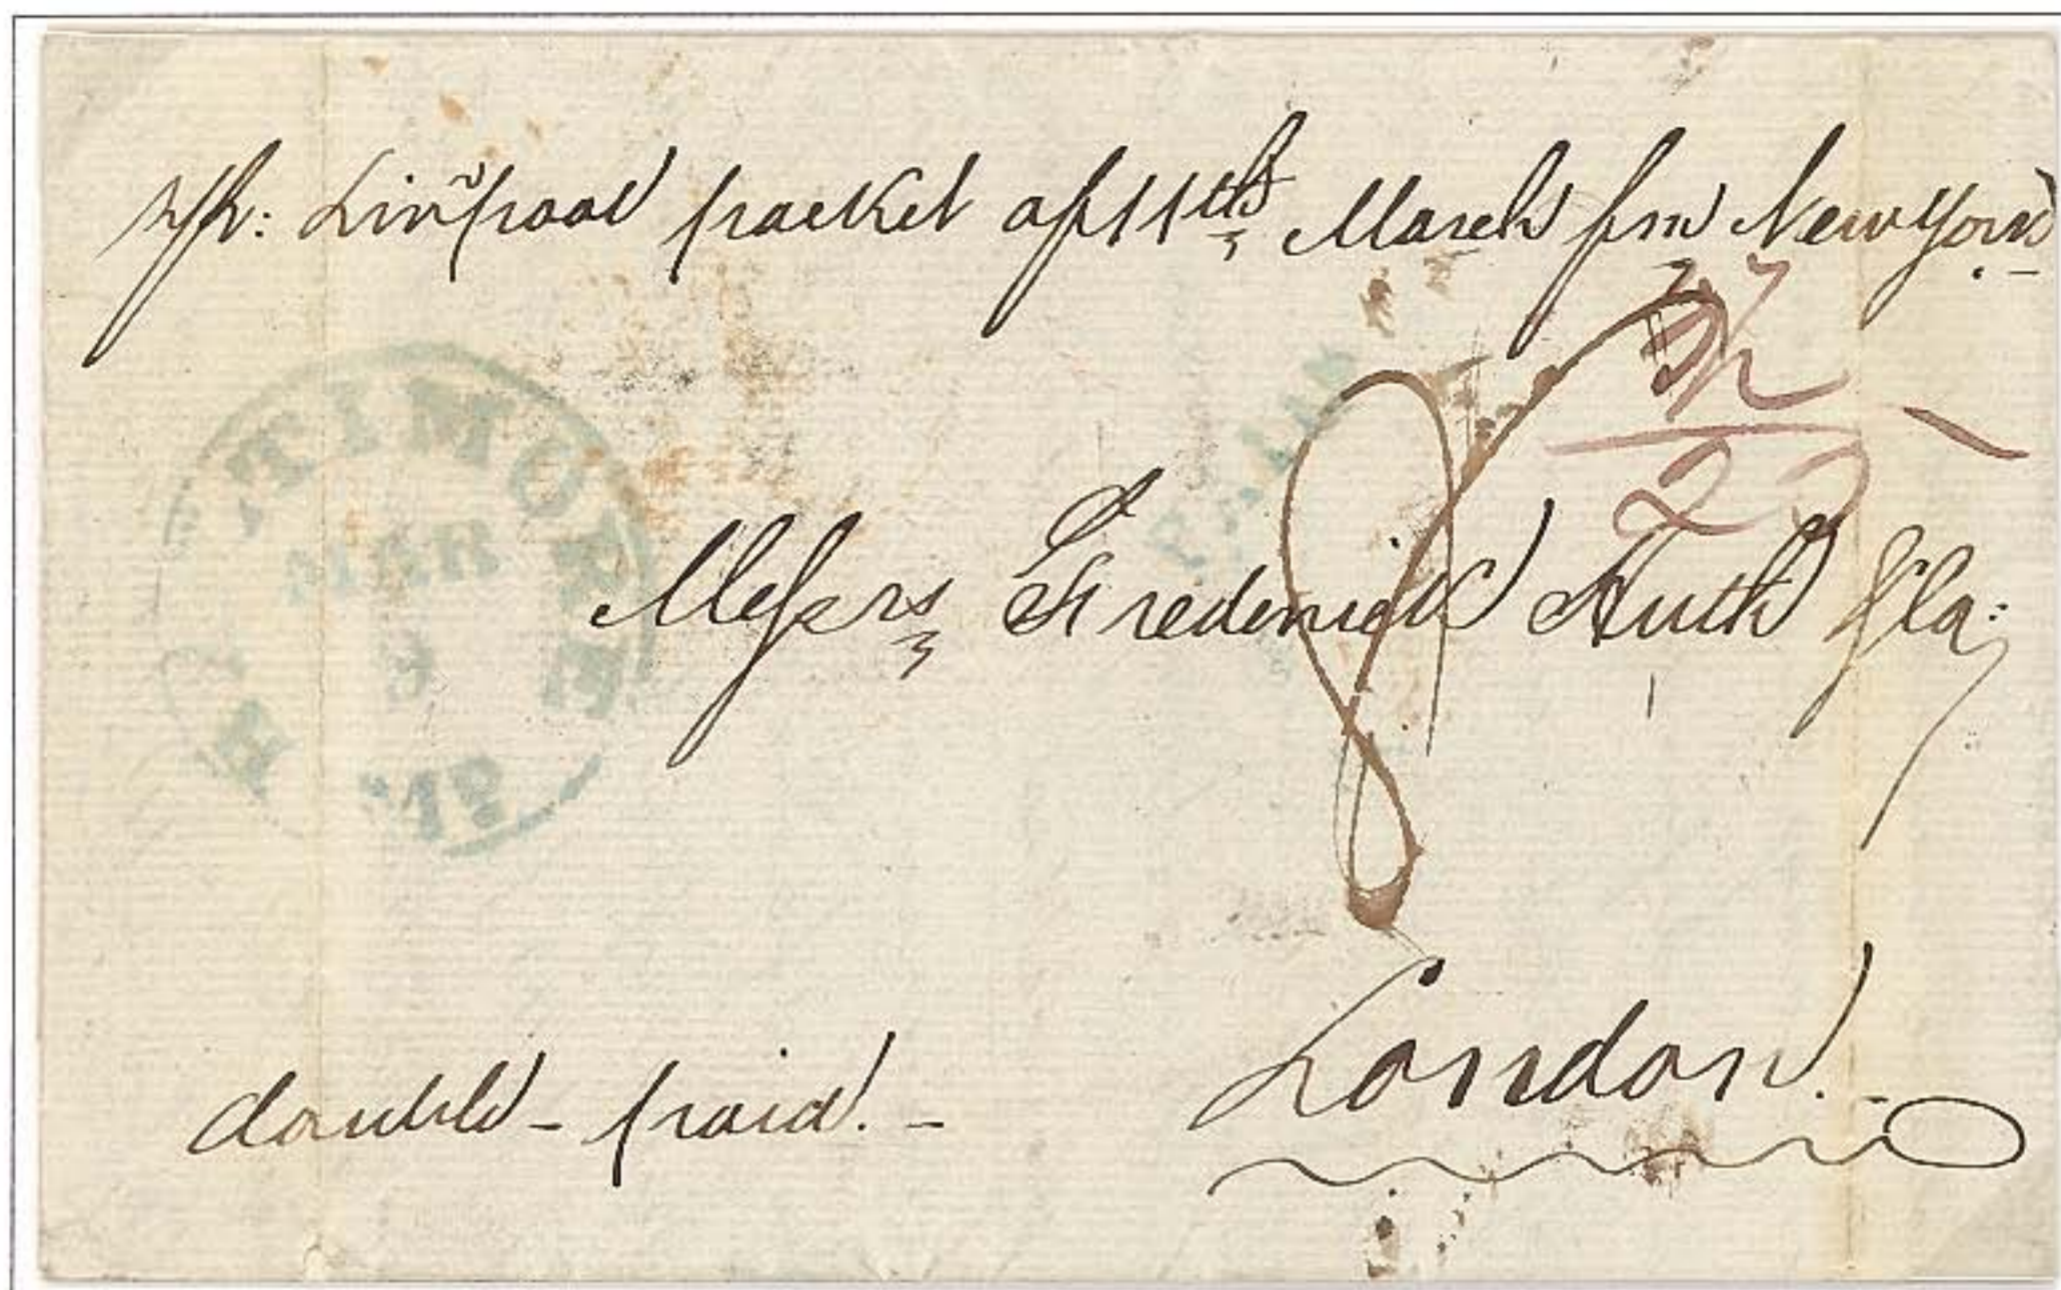 pr: Liverpool packet of 11th March fm New York
BALTIMORE
MAR
9
Md.
PAID
Messrs Frederick Huth & Co:
London.
double - paid. -